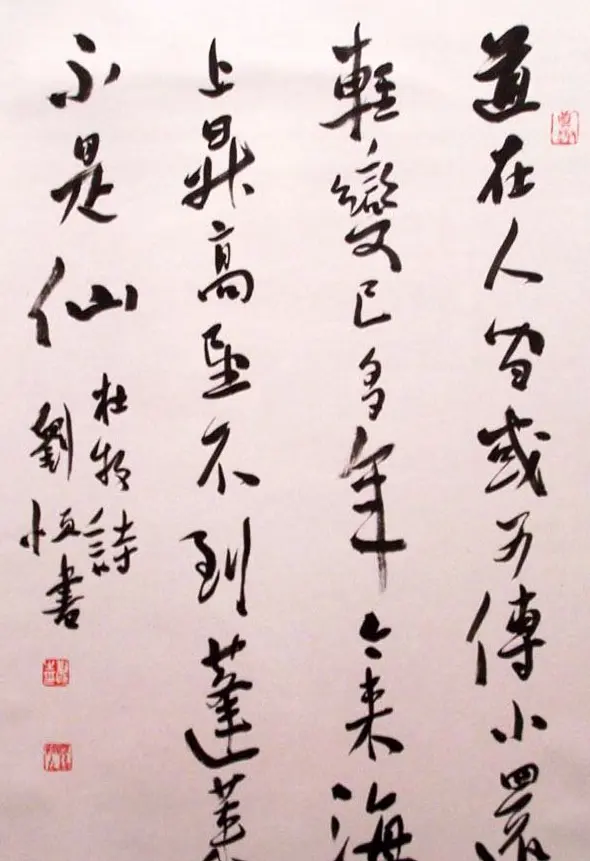 道在人間或可傳小還
輕變已多年今来海
上昇高望不到蓬萊
不是仙
杜牧詩
劉恒書